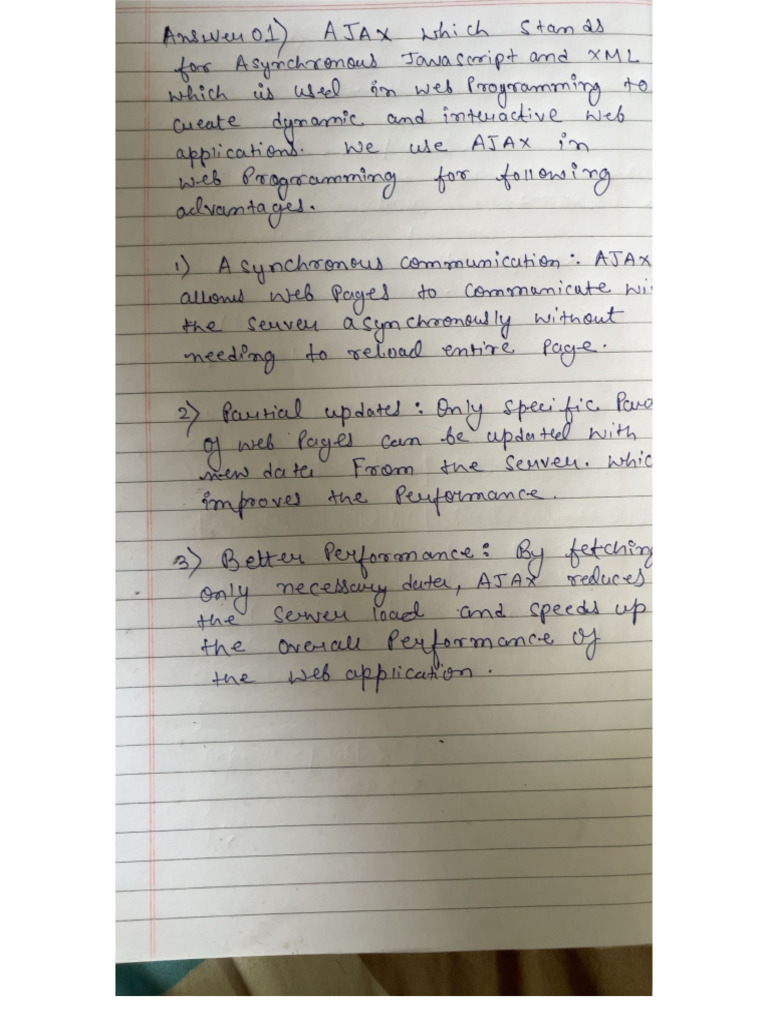 Answer 01) AJAX which stands
for Asynchronous Javascript and XML
which is used in web Programming to
create dynamic and interactive web
applications. We use AJAX in
web Programming for following
advantages.
1) Asynchronous communication: AJAX
allows web pages to communicate wi
the server asynchronously without
needing to reload entire page.
2) Partial updates: Only specific Par
of web pages can be updated with
new data From the server. whic
improves the Performance.
3) Better Performance: By fetching
only necessary data, AJAX reduces
the server load and speeds up
the overall Performance of
the web application.